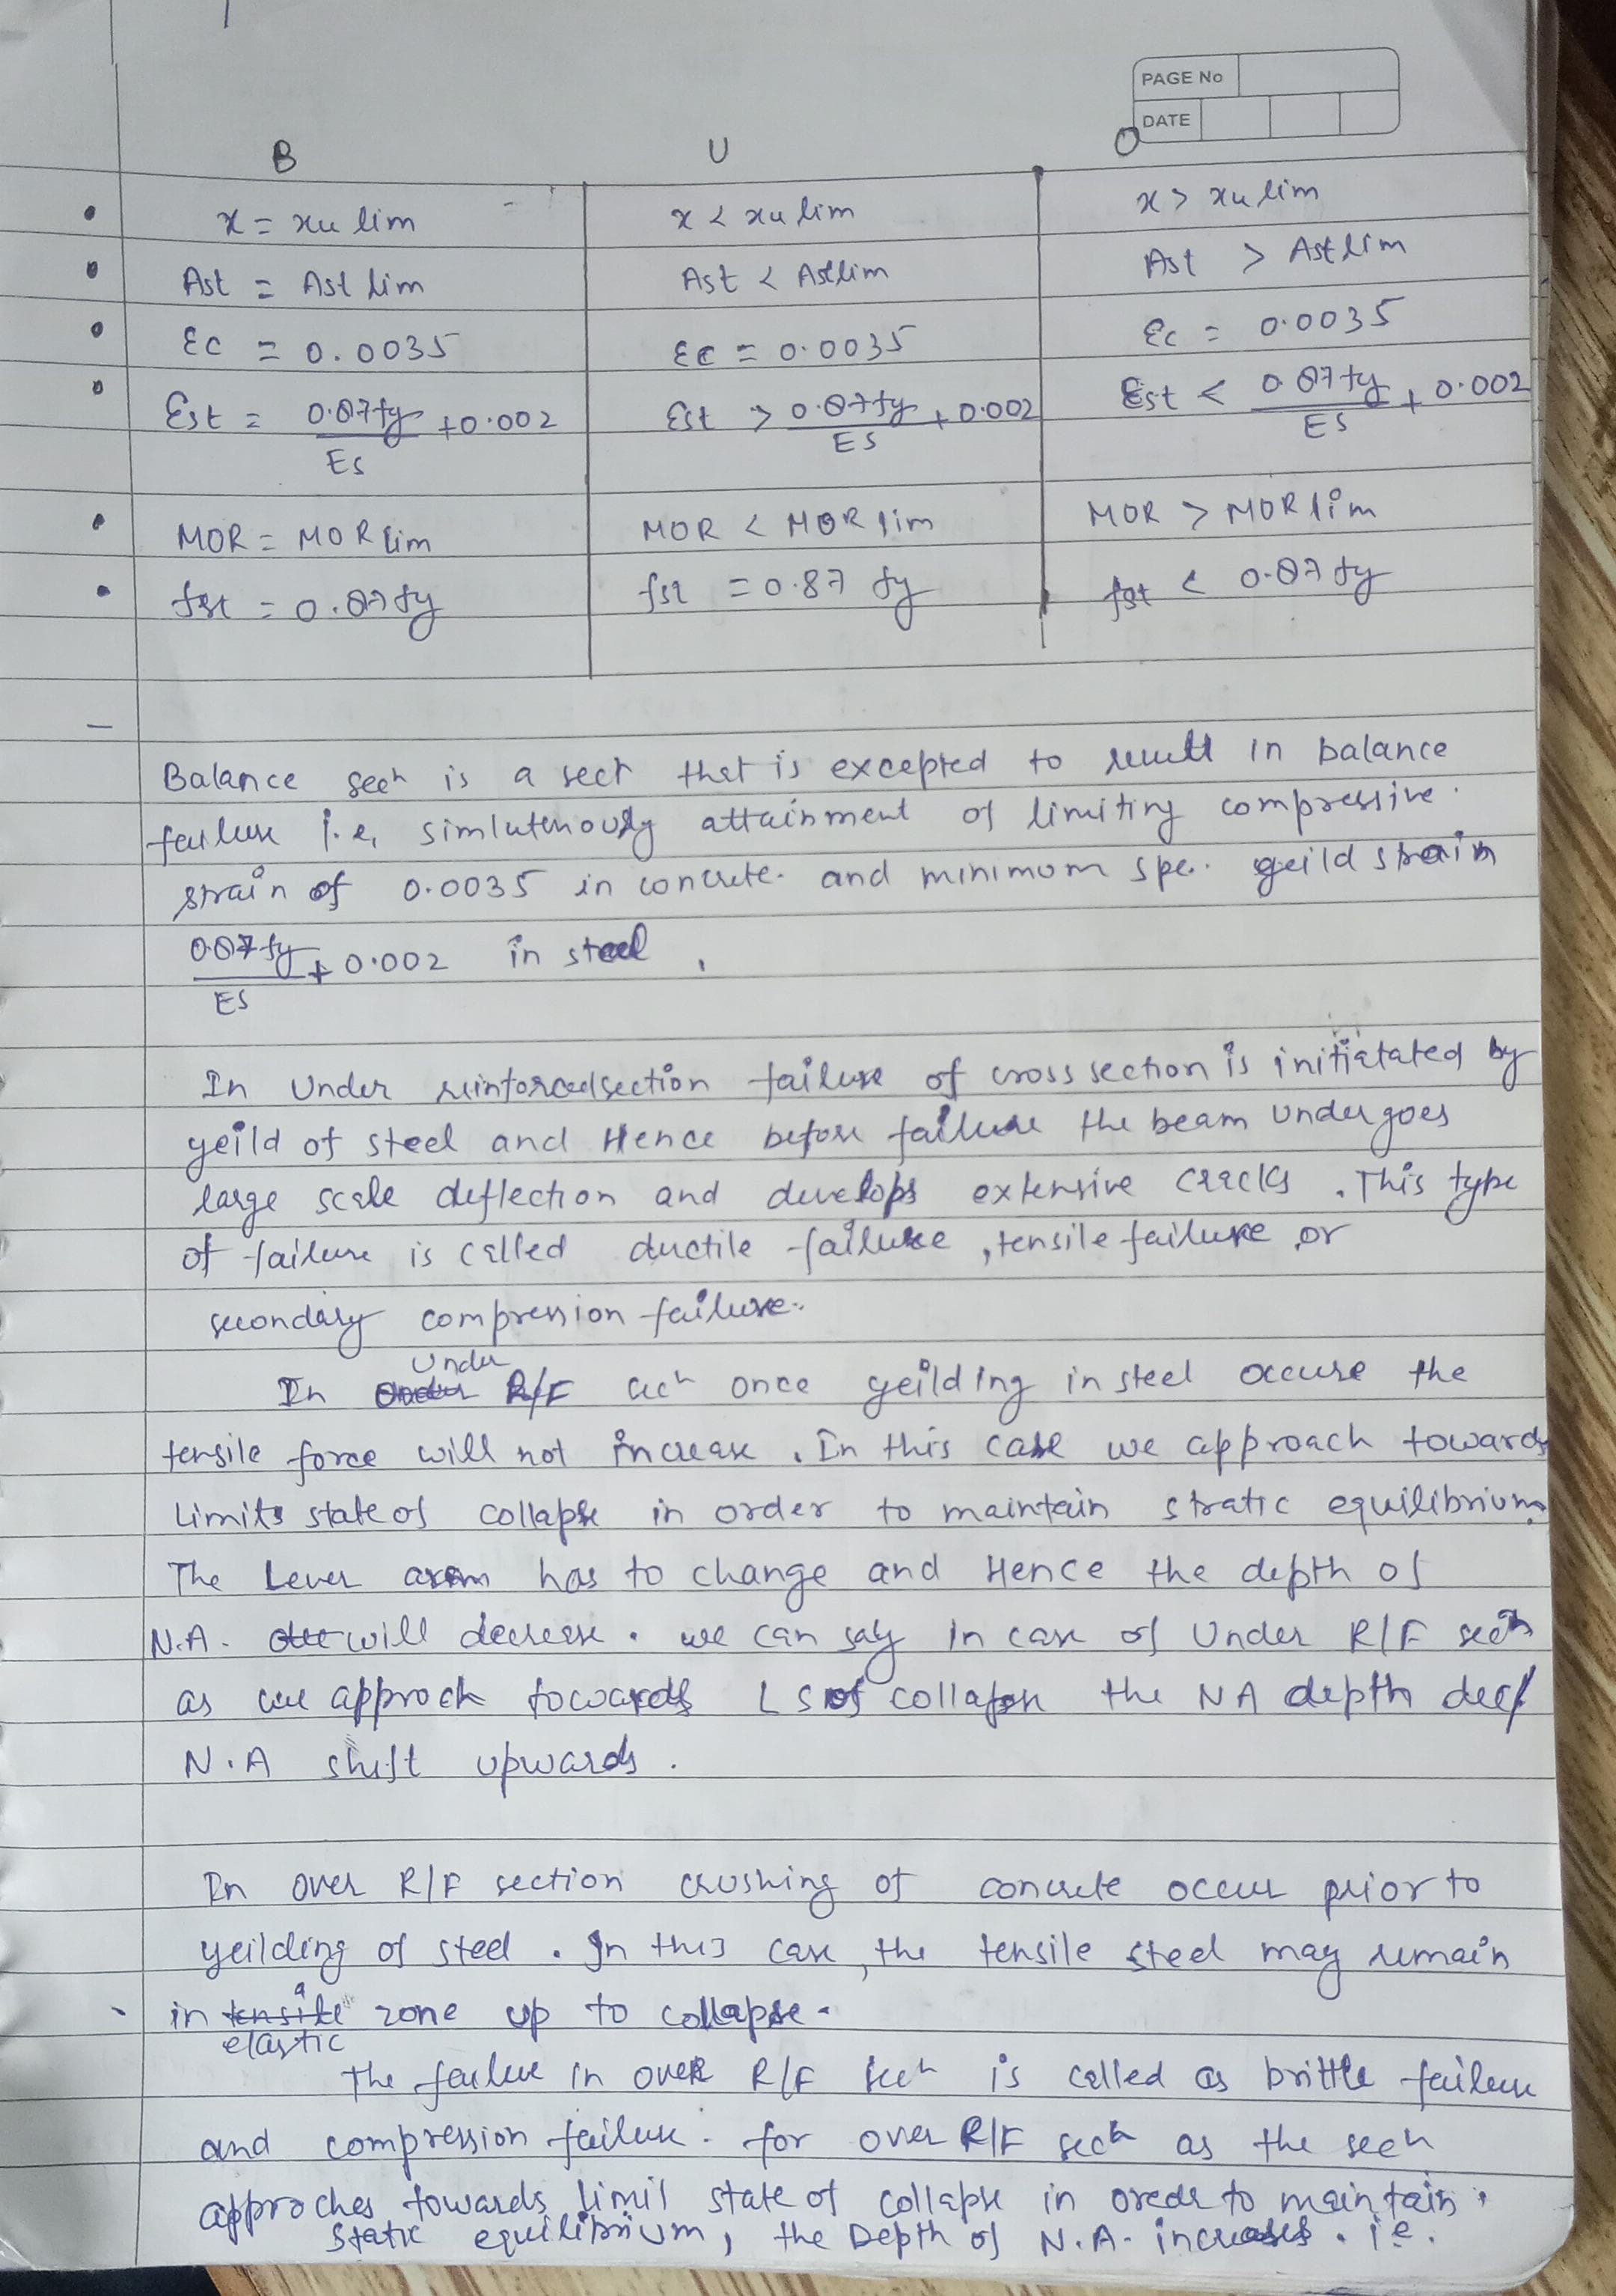 PAGE No
DATE
B U O
x = xu lim x < xu lim x > xu lim
Ast = Ast lim Ast < Ast lim Ast > Ast lim
Ec = 0.0035 Ec = 0.0035 Ec = 0.0035
Est = 0.87fy/Es + 0.002 Est > 0.87fy/Es + 0.002 Est < 0.87fy/Es + 0.002
MOR = MOR lim MOR < MOR lim MOR > MOR lim
fst = 0.87fy fst = 0.87 fy fst < 0.87 fy
Balance secn is a secn that is excepted to result in balance
failure i.e, simlutenously attainment of limiting compressive
strain of 0.0035 in concrete. and minimum spe. yeild strain
0.87fy/Es + 0.002 in steel.
In Under reinforced section failure of cross section is initiatated by
yeild of steel and Hence before failure the beam undergoes
large scale deflection and develops extensive cracks. This type
of failure is called ductile failure, tensile failure or
secondary compression failure.
In Under R/F secn once yeilding in steel occure the
tensile force will not increase. In this case we approach towards
Limits state of collapse in order to maintain stratic equilibrium.
The Lever arm has to change and Hence the depth of
N.A. will decrease. we can say in case of Under R/F secn
as we approch towards LS of collapse the NA depth decr
N.A shift upwards.
In over R/F section crushing of concrete occur prior to
yeilding of steel. In this case, the tensile steel may remain
in elastic zone up to collapse.
The failure in over R/F secn is called as brittle failure
and compression failure. for over R/F secn as the secn
approches towards limit state of collapse in oreder to maintain
static equilibrium, the Depth of N.A. increases. i.e.